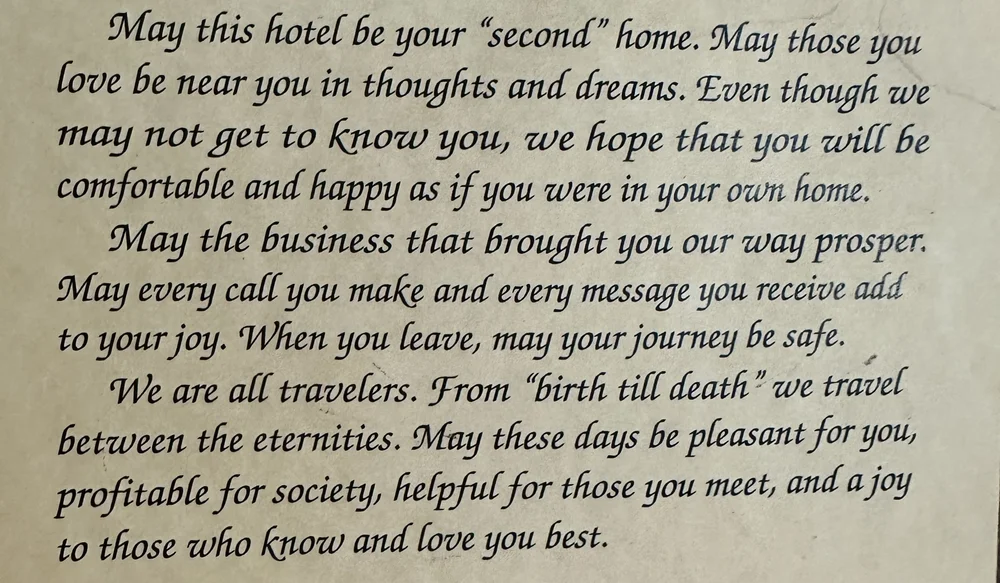 May this hotel be your “second” home. May those you
love be near you in thoughts and dreams. Even though we
may not get to know you, we hope that you will be
comfortable and happy as if you were in your own home.
May the business that brought you our way prosper.
May every call you make and every message you receive add
to your joy. When you leave, may your journey be safe.
We are all travelers. From “birth till death” we travel
between the eternities. May these days be pleasant for you,
profitable for society, helpful for those you meet, and a joy
to those who know and love you best.